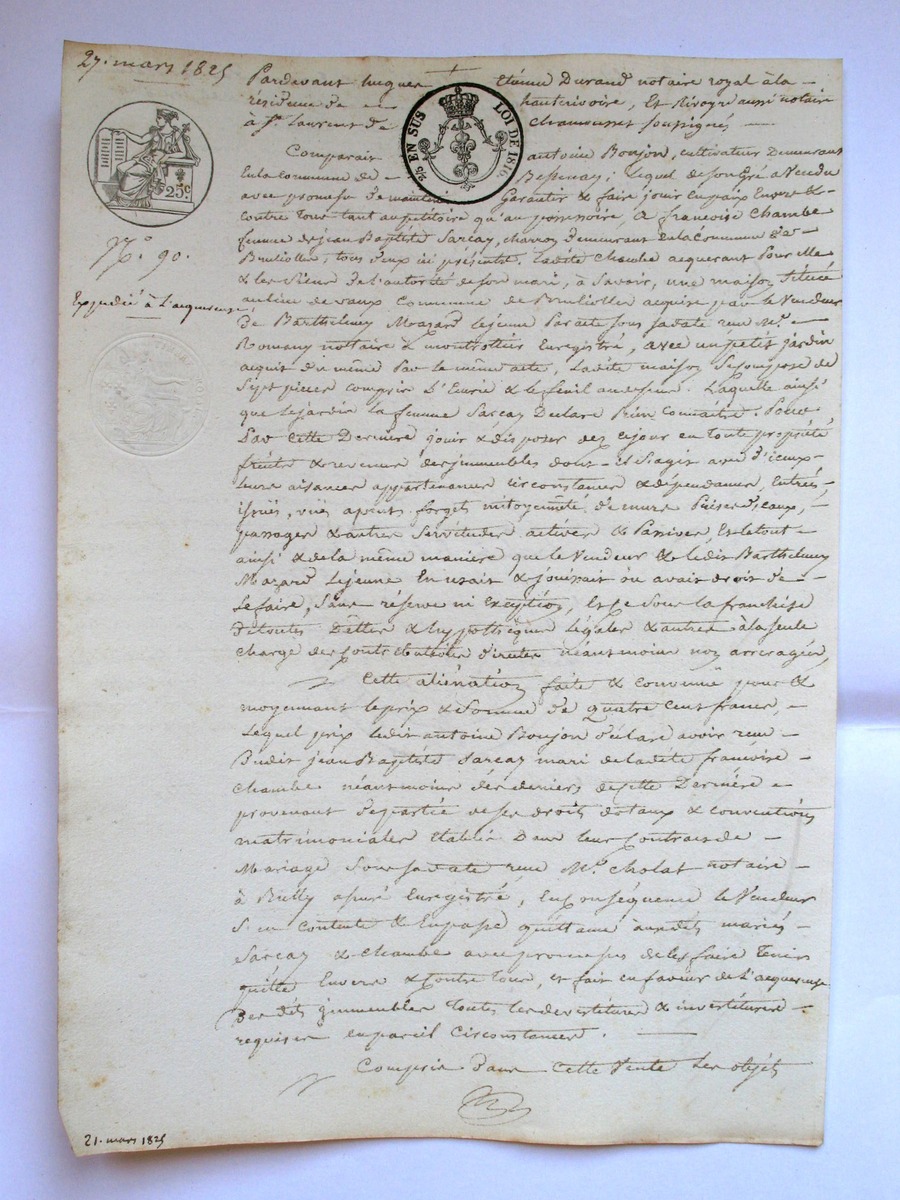 27. mars 1825
Pardevant hugues Etienne Durand notaire royal à la
résidence de hauterivoire, Et Rivoyre aussi notaire
à St. Laurent de Chamousset soussignés
2/5 EN SUS LOI DE 1816.
25c.
Comparait antoine Boujon, cultivateur Demeurant
En la commune de Bessenay; lequel de son gré a Vendu
avec promesse de maintenir Garantir & faire jouir En paix Envers &
contre tous tant au petitoire qu'au possessoire, A françoise Chambe
femme de jean Baptiste Sarcay, charron demeurant En la Commune de
Brullioles; tous deux ici présents. Ladite Chambe acquerant Pour Elle
& les Siens de l'autorité de son mari, à Savoir, une maison Située
N.o 90.
Expedié à l'acquereuse
au lieu de vaux Commune de Brullioles acquise par le Vendeur
De Barthelemy Mazard Lejeune Par acte sous sa date reçu Me.
Romany notaire à montrottier Enregistré, avec un petit jardin
acquis du même Par le même acte, Ladite maison Se compose de
Sept pieces compris L'Ecurie & le fenil au dessus. Laquelle ainsi
que le jardin la femme Sarcay Declare bien Connaitre. Pour
Par cette Derniere jouir & disposer dez ce jour en toute propriété
fruits & revenus des immeubles dont il S'agit avec d'iceux
leurs aisances appartenances Circonstances & dépendances, Entrées
issues, vües apents forgets mitoyenneté de murs Puises d'eaux,
passages & autres Servitudes actives & Passives, Et le tout
ainsi & de la même maniere que le Vendeur & ledit Barthelemy
Mazard Lejeune En usait & jouissait ou avait droit de
Le faire, Sans réserve ni Exception, Et ce sous la franchise
De toutes Dettes & hypothèques Légales & autres à la seule
charge des contributions directes néantmoins non arreragées
Cette aliénation faite & convenüe pour &
moyennant le prix & Somme de quatre Cent francs,
Lequel prix ledit antoine Boujon déclare avoir reçu
Dudit jean Baptiste Sarcay mari de ladite françoise
Chambe néantmoins des deniers de cette Derniére
provenant de partie de ses droits dotaux & conventions
matrimoniales Etablis Dans leur Contrat de
Mariage Sous sa date reçu Me. Cholat notaire
à Bully aprés Enregistré, En Conséquence le Vendeur
S'en Contente & En passe quittance auxdits mariés
Sarcay & Chambe avec promesses de les faire Tenir
quitte Envers & Contre tous, et fait en faveur de L'acquereuse
Des dits immeubles toutes les devestitures & investitures
requises en pareil Circonstances.
Compris dans cette Vente Les objets
21. mars 1825